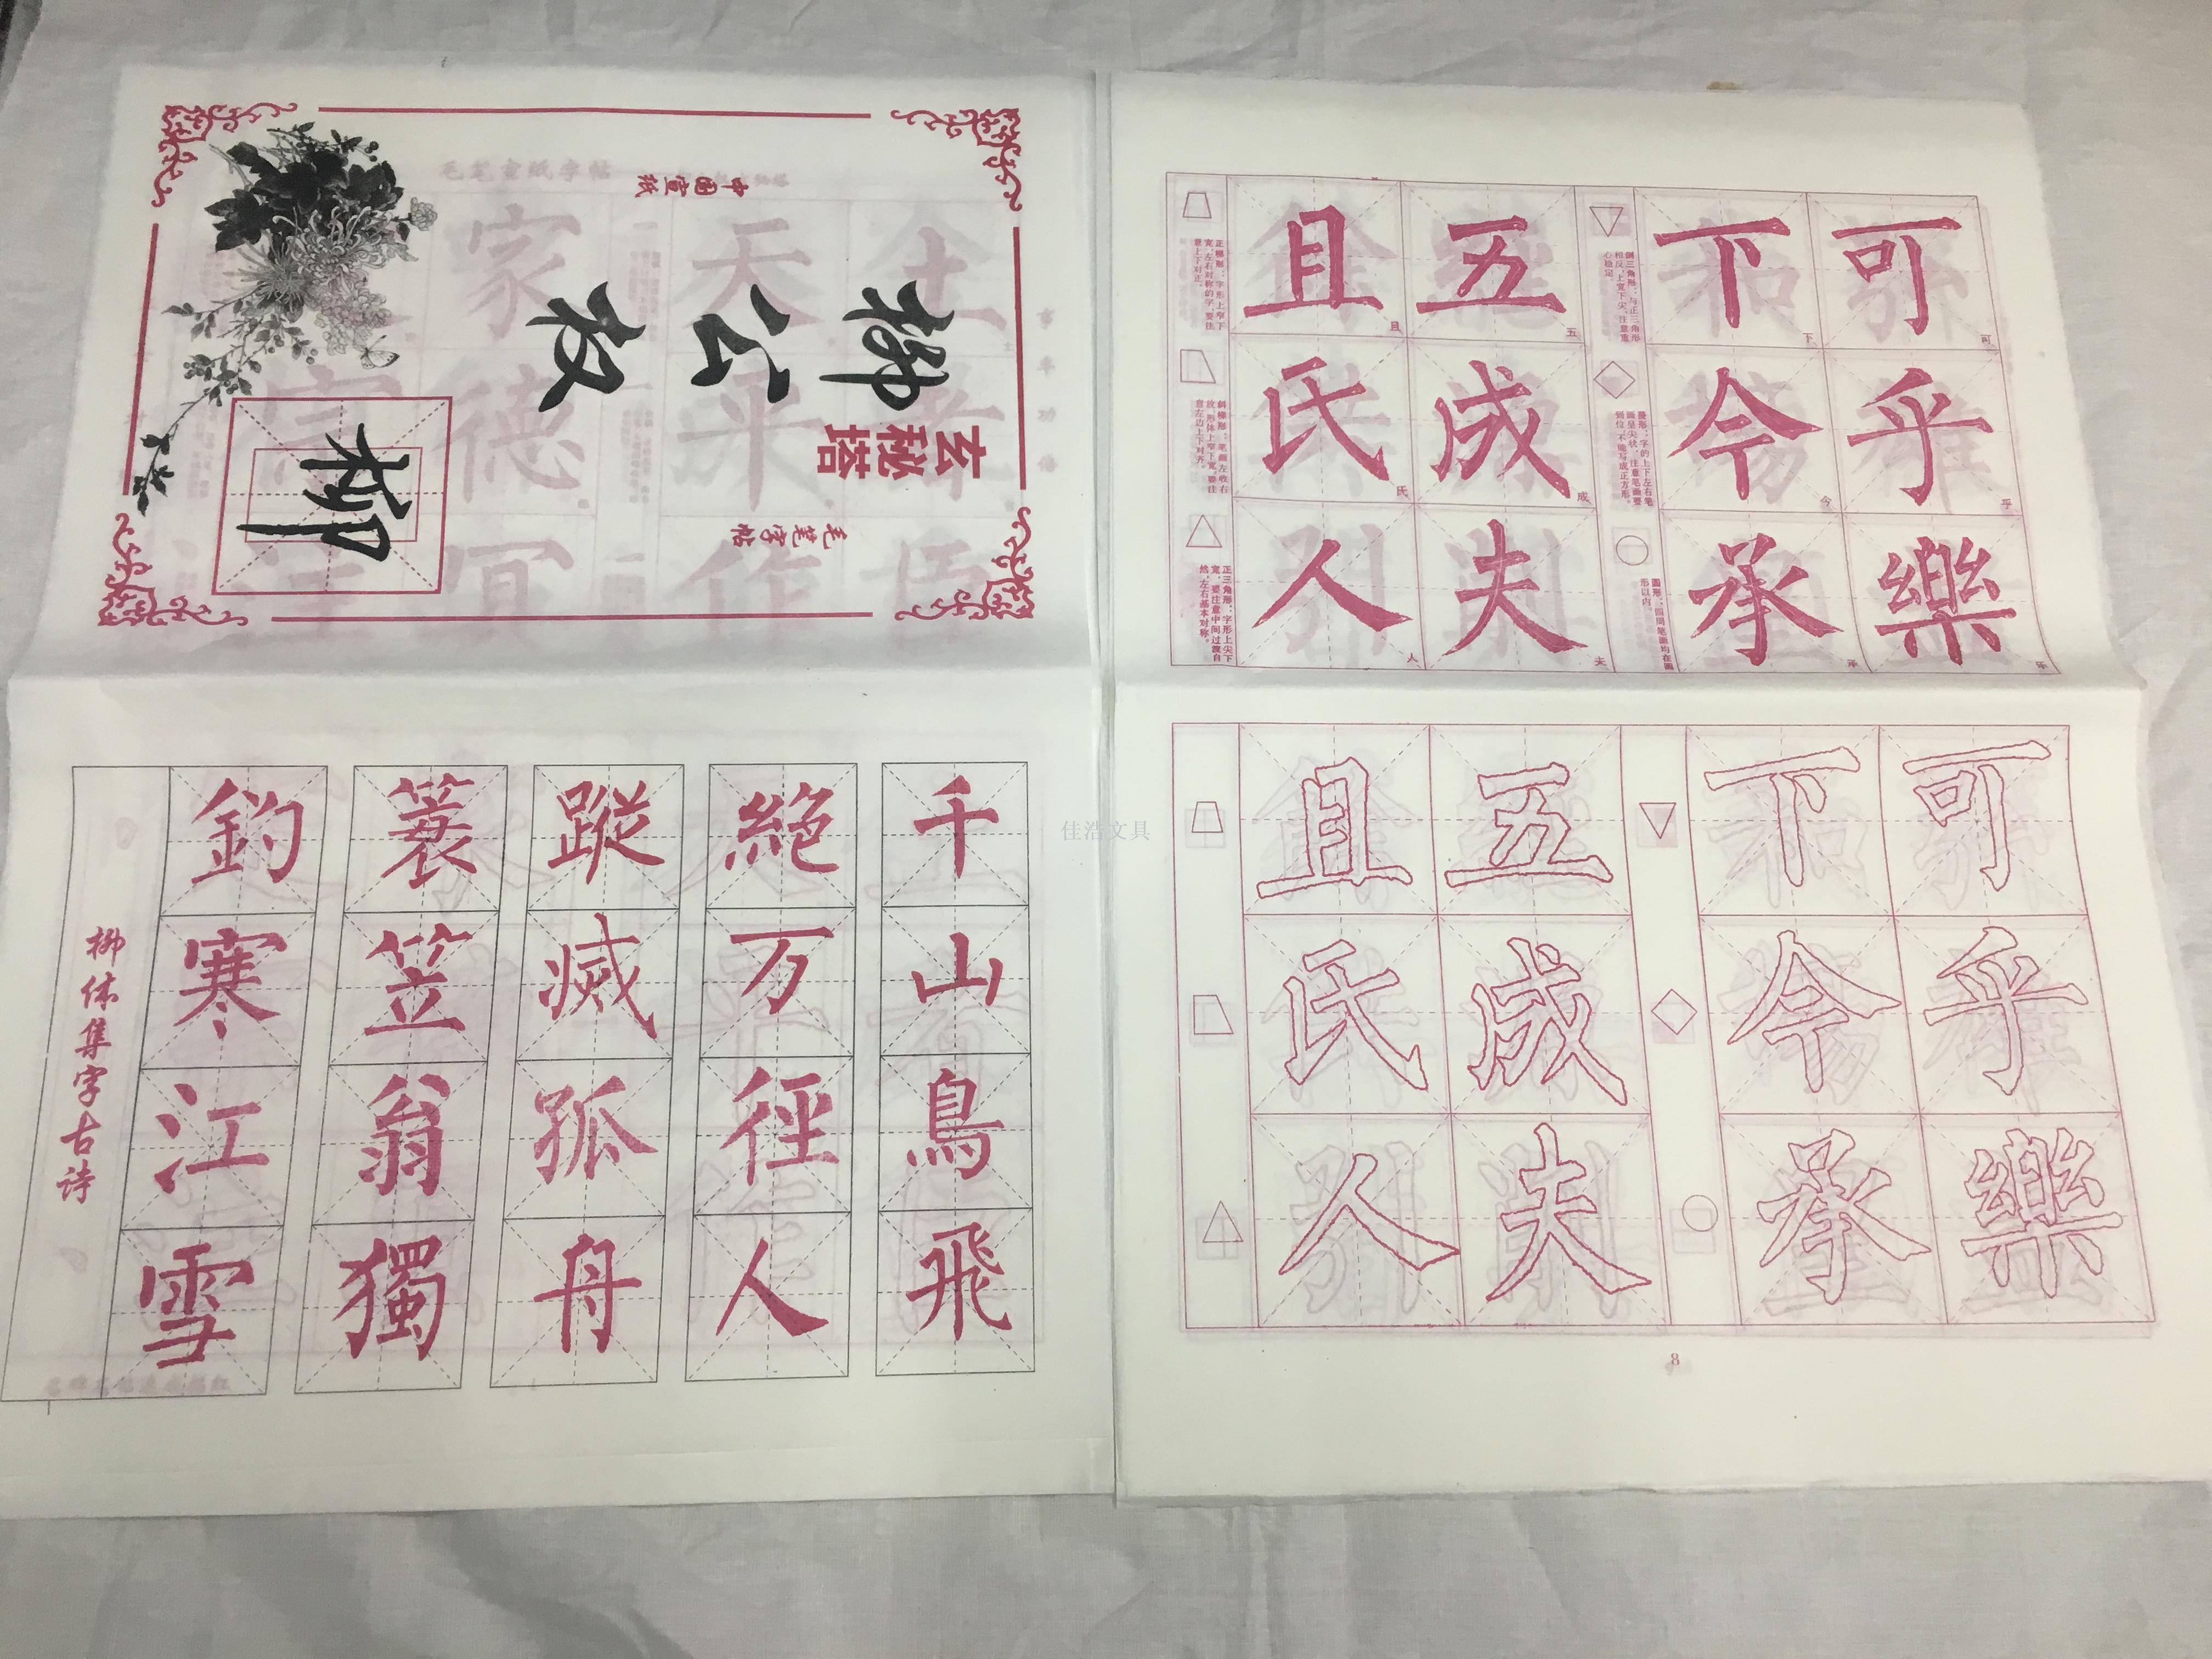 中国宣纸
柳公权
玄秘塔
毛笔字帖
柳
千山鳥飛
絶万徑人
蹤滅孤舟
蓑笠翁獨
釣寒江雪
柳体集字古诗
可乎樂
可乎乐
下今承
下今承
倒三角形：与正三角形相反，上宽下尖，注意重心稳定。
菱形：字的上下左右笔画呈尖状，注意笔画要到位，不能写成正方形。
圆形：四周笔画均在圆形以内。
五成夫
五成夫
且氏人
且氏人
正梯形：字形上窄下宽，左右对称的字，要注意上下对正。
斜梯形：笔画左收右放，形体上窄下宽，要注意左边上下对齐。
正三角形：字形上尖下宽，要注意中间过渡自然，左右基本对称。
可乎樂
下今承
五成夫
且氏人
8
佳浩文具